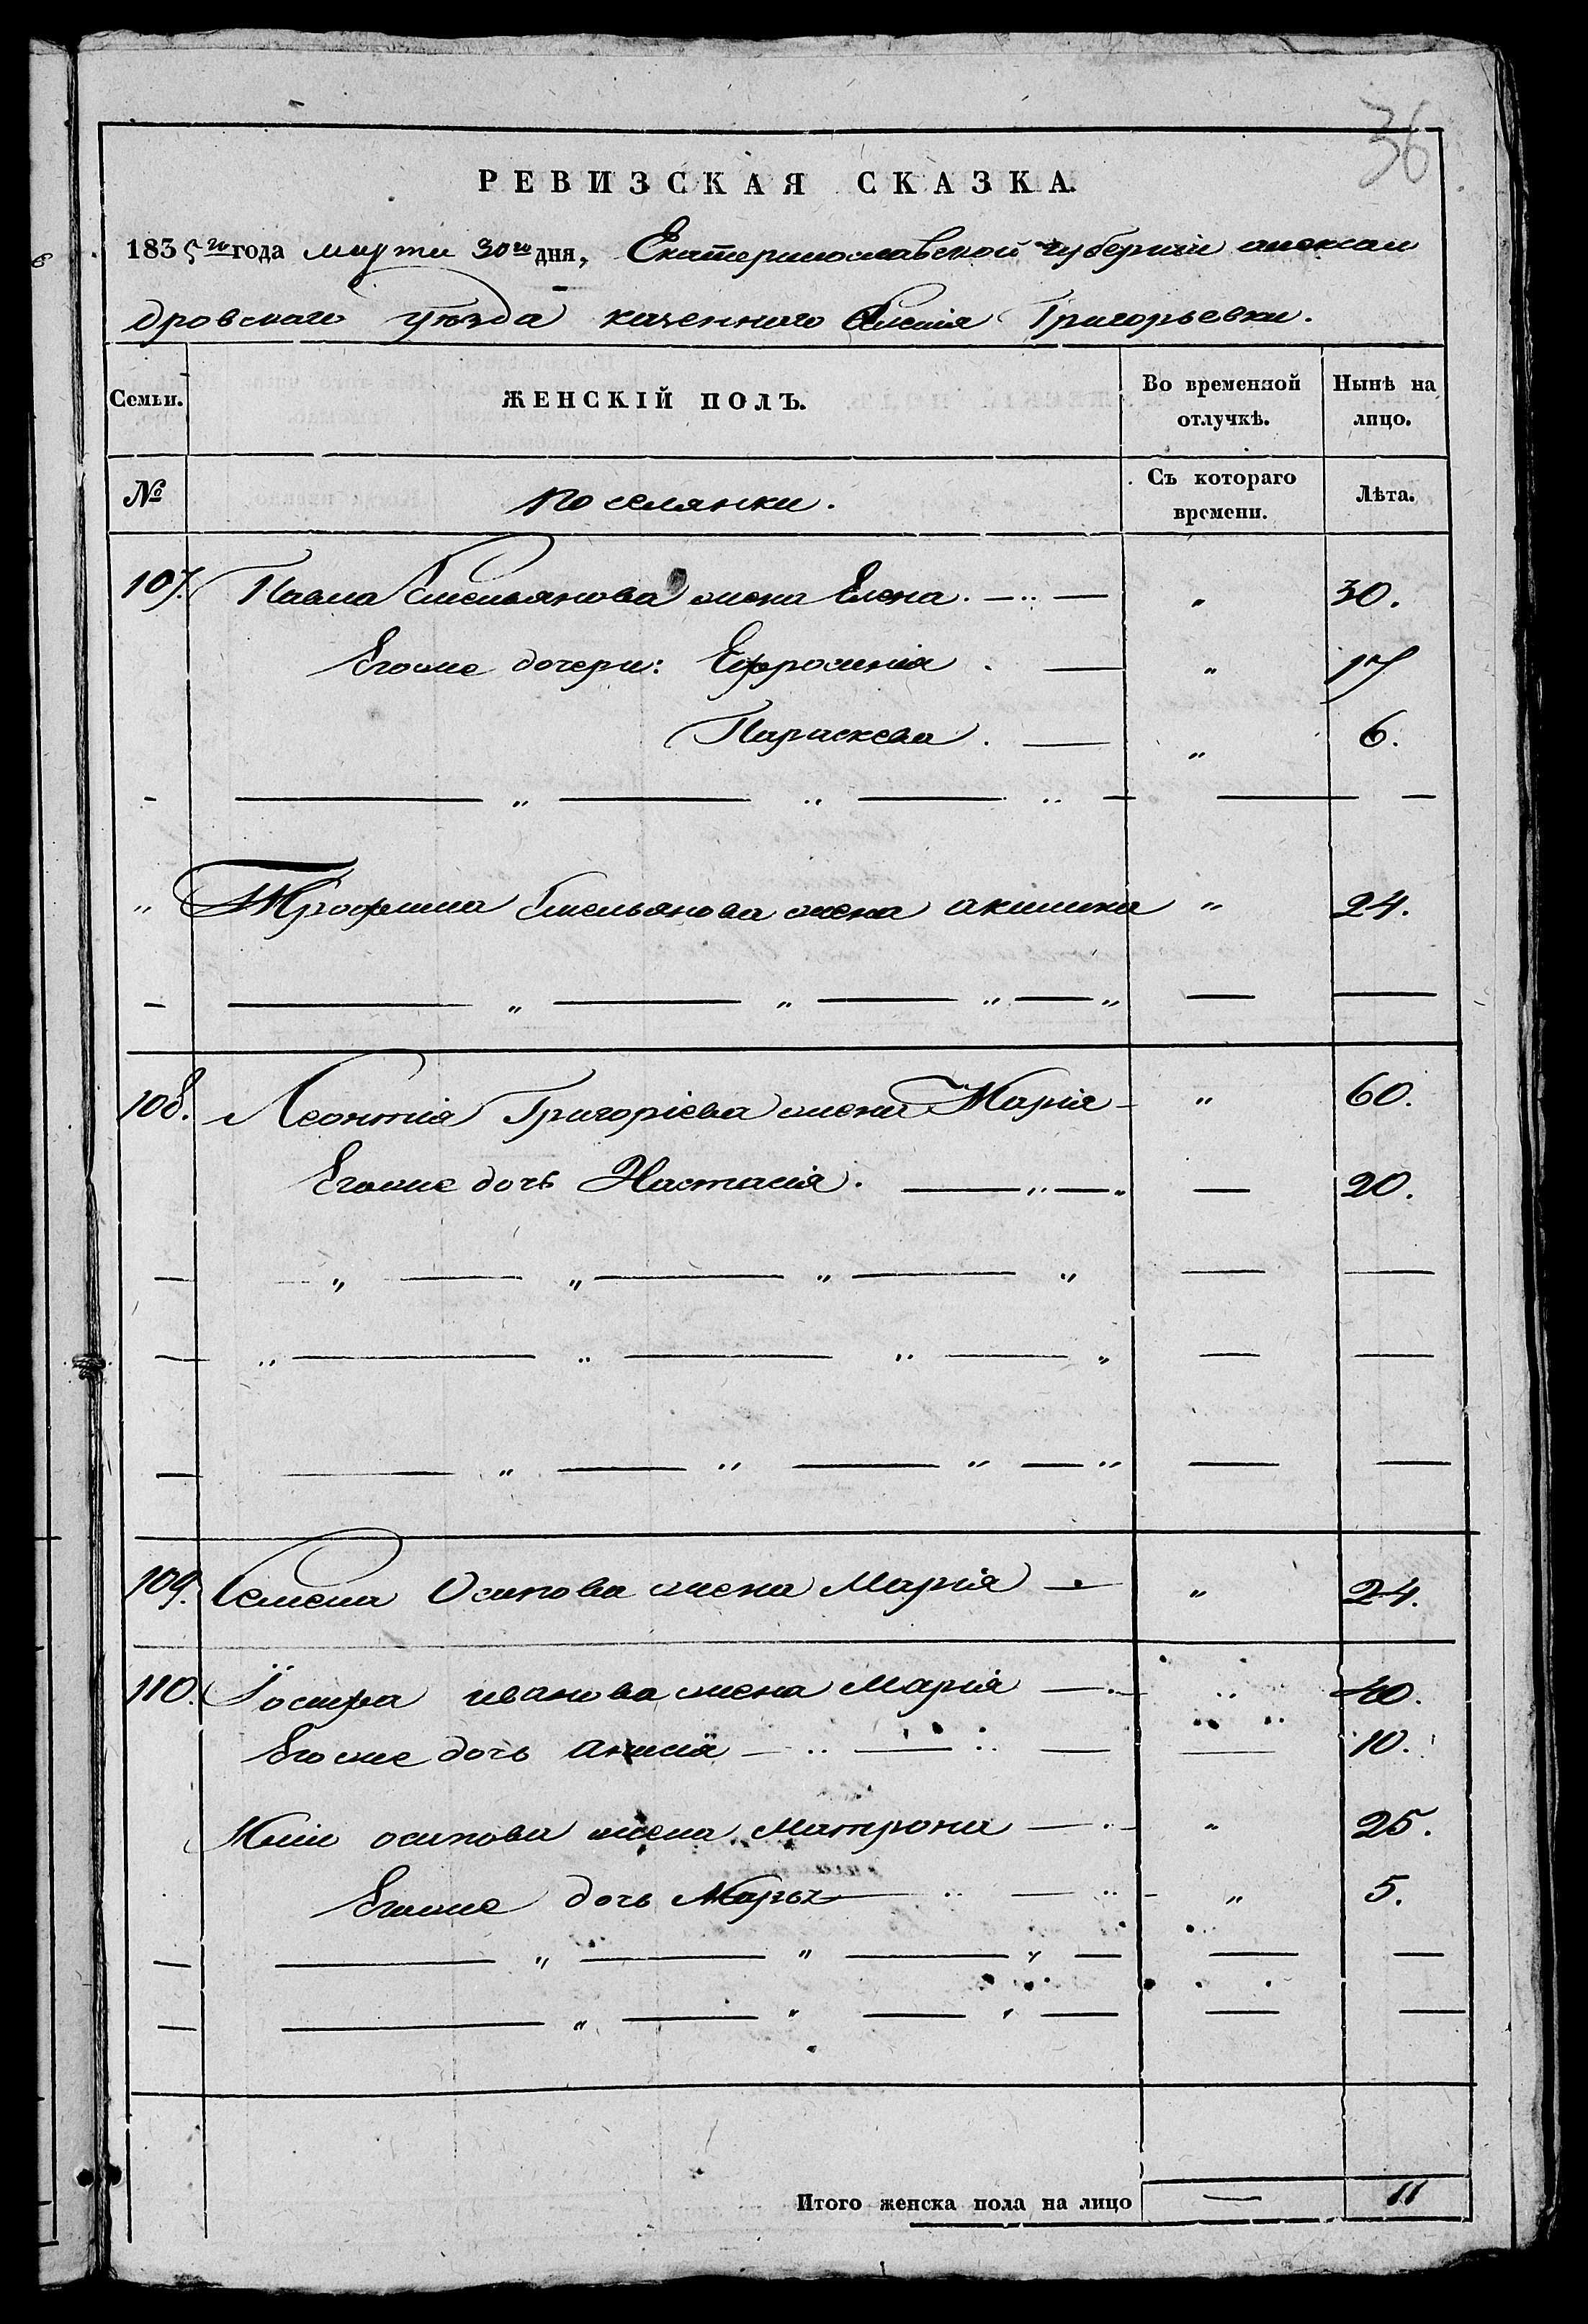 36
РЕВИЗСКАЯ СКАЗКА.
1835го года марта 30го дня, Екатеринославской губернии алексан
дровскаго уѣзда казенного селенія Григорьевки.
Семьи. ЖЕНСКІЙ ПОЛЪ. Во временной отлучкѣ. Нынѣ на лицо.
№ поселянки. Съ котораго времени. Лѣта.
107. Павла Емельянова жена Елена. — „ 30.
Егоже дочери: Ефросинія. — „ 17
Параскева. — „ 6.
„ Трофима Емельянова жена акилина „ 24.
108. Леонтія Григоріева жена Марія - „ 60.
Егоже дочь Настасія. — „ — „ — 20.
109. Семена Осипова жена Марія — „ 24.
110. Іосифа иванова жена Марія — „ 40.
Егоже дочь анисія — „ — „ — — 10.
осипова жена Матрона — „ 25.
Егоже дочь Марья — „ — „ - „ 5.
Итого женска пола на лицо — 11